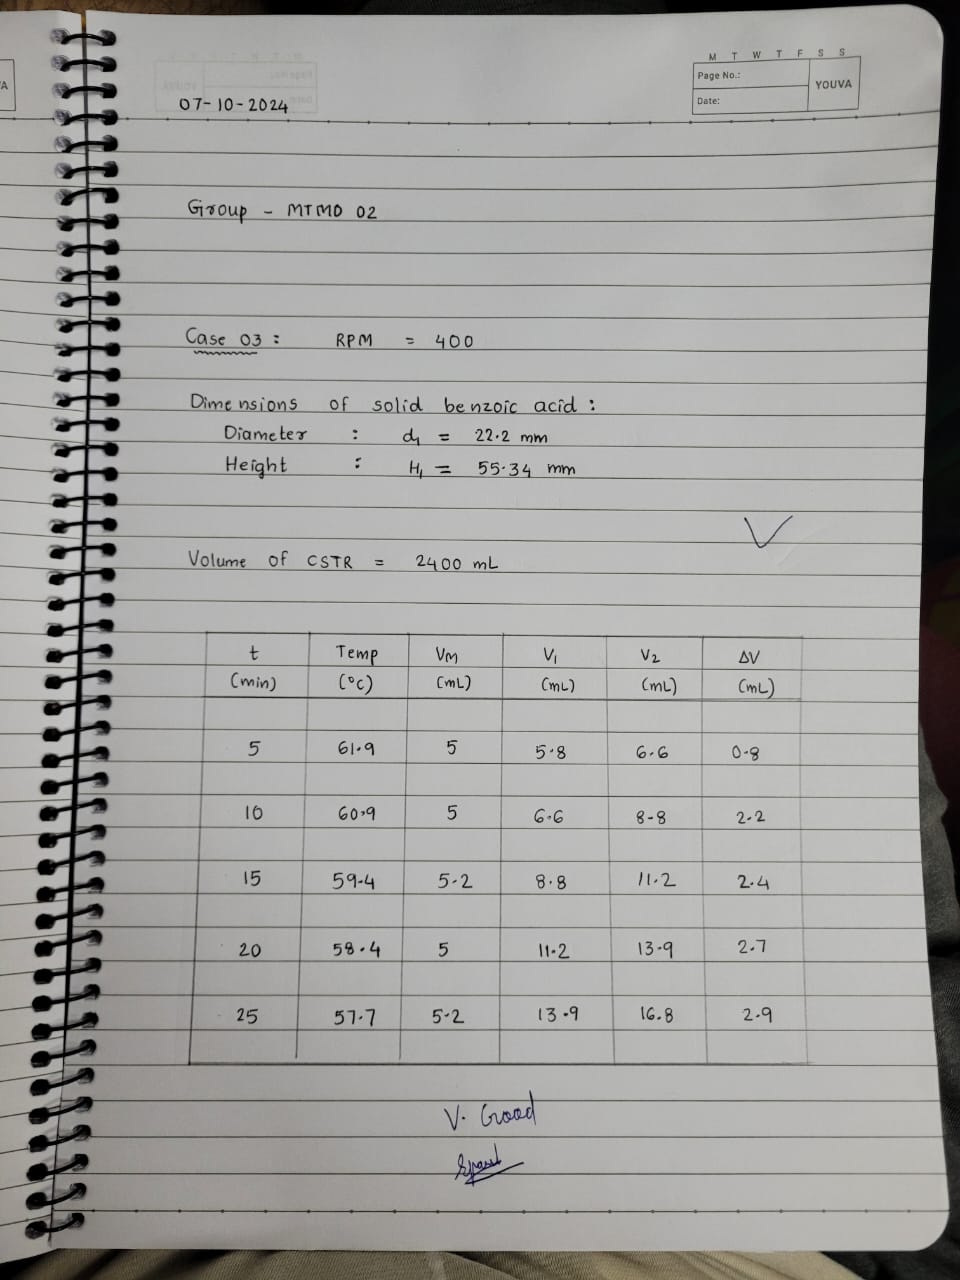 M T W T F S S
Page No.:
YOUVA
Date:
07-10-2024
Group - MTMO 02
Case 03 : RPM = 400
Dimensions of solid benzoic acid :
Diameter : d₁ = 22.2 mm
Height : H₁ = 55.34 mm
Volume of CSTR = 2400 mL
t Temp VM V₁ V₂ ΔV
(min) (°C) (mL) (mL) (mL) (mL)
5 61.9 5 5.8 6.6 0.8
10 60.9 5 6.6 8.8 2.2
15 59.4 5.2 8.8 11.2 2.4
20 58.4 5 11.2 13.9 2.7
25 57.7 5.2 13.9 16.8 2.9
V. Good